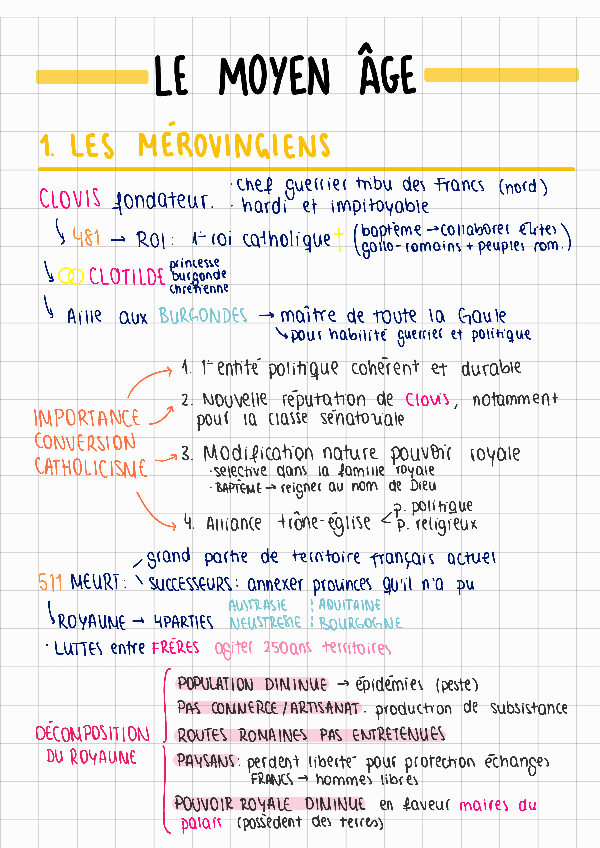 LE MOYEN ÂGE
1. LES MÉROVINGIENS
CLOVIS fondateur. · chef guerrier tribu des Francs (nord)
· hardi et impitoyable
↳ 481 → ROI: 1er roi catholique † (baptème → collaborer élites)
(gallo-romains + peuples rom.)
↳ CLOTILDE princesse
burgonde
chrétienne
↳ Allie aux BURGONDES → maître de toute la Gaule
↳ pour habilité guerrier et politique
IMPORTANCE
CONVERSION
CATHOLICISME
1. 1re entité politique cohérent et durable
2. Nouvelle réputation de Clovis, notamment
pour la classe sénatoriale
3. Modification nature pouvoir royale
· selective dans la famille royale
· BAPTÈME → reigner au nom de Dieu
4. Alliance trône-église < p. politique
p. religieux
grand partie de territoire français actuel
511 MEURT: SUCCESSEURS: annexer provinces qu'il n'a pu
↳ ROYAUME → 4 PARTIES AUSTRASIE AQUITAINE
NEUSTREBIE BOURGOGNE
· LUTTES entre FRÈRES agiter 250ans territoires
DÉCOMPOSITION
DU ROYAUME
POPULATION DIMINUE → épidémies (peste)
PAS COMMERCE/ARTISANAT. production de subsistance
ROUTES ROMAINES PAS ENTRETENUES
PAYSANS: perdent liberté pour protection échanges
FRANCS → hommes libres
POUVOIR ROYALE DIMINUE en faveur maires du
palais (possèdent des terres)